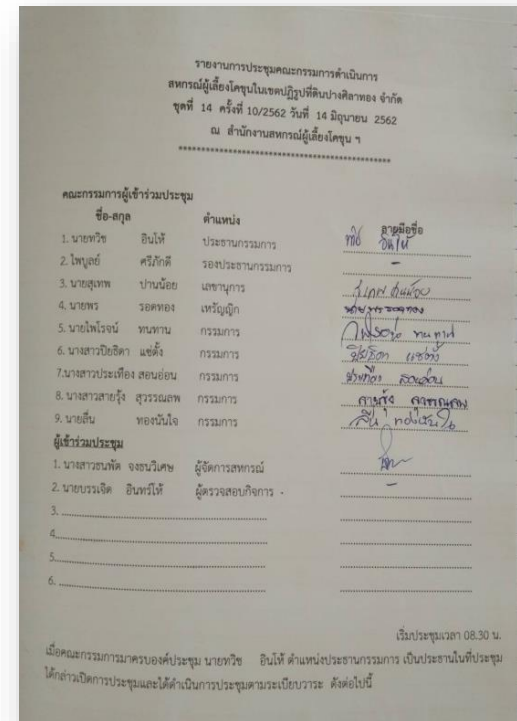 รายงานการประชุมคณะกรรมการดำเนินการ
สหกรณ์ผู้เลี้ยงโคขุนในเขตปฏิรูปที่ดินปางศิลาทอง จำกัด
ชุดที่ 14 ครั้งที่ 10/2562 วันที่ 14 มิถุนายน 2562
ณ สำนักงานสหกรณ์ผู้เลี้ยงโคขุน ฯ
************************************************
คณะกรรมการผู้เข้าร่วมประชุม
ชื่อ-สกุล ตำแหน่ง ลายมือชื่อ
1. นายทวิช อินโห้ ประธานกรรมการ ทวิช อินโห้
2. ไพบูลย์ ศรีภักดี รองประธานกรรมการ -
3. นายสุเทพ ปานน้อย เลขานุการ สุเทพ ปานน้อย
4. นายพร รอดทอง เหรัญญิก นายพร รอดทอง
5. นายไพโรจน์ ทนทาน กรรมการ ไพโรจน์ ทนทาน
6. นางสาวปิยธิดา แซ่ตั้ง กรรมการ ปิยธิดา แซ่ตั้ง
7.นางสาวประเทือง สอนอ่อน กรรมการ ประเทือง สอนอ่อน
8. นางสาวสายรุ้ง สุวรรณลพ กรรมการ สายรุ้ง สุวรรณลพ
9. นายลื่น ทองนันไจ กรรมการ ลื่น
ผู้เข้าร่วมประชุม
1. นางสาวธนพัต จงธนวิเศษ ผู้จัดการสหกรณ์
2. นายบรรเจิด อินทร์โห้ ผู้ตรวจสอบกิจการ - -
3.
4.
5.
6.
เริ่มประชุมเวลา 08.30 น.
เมื่อคณะกรรมการมาครบองค์ประชุม นายทวิช อินโห้ ตำแหน่งประธานกรรมการ เป็นประธานในที่ประชุม
ได้กล่าวเปิดการประชุมและได้ดำเนินการประชุมตามระเบียบวาระ ดังต่อไปนี้